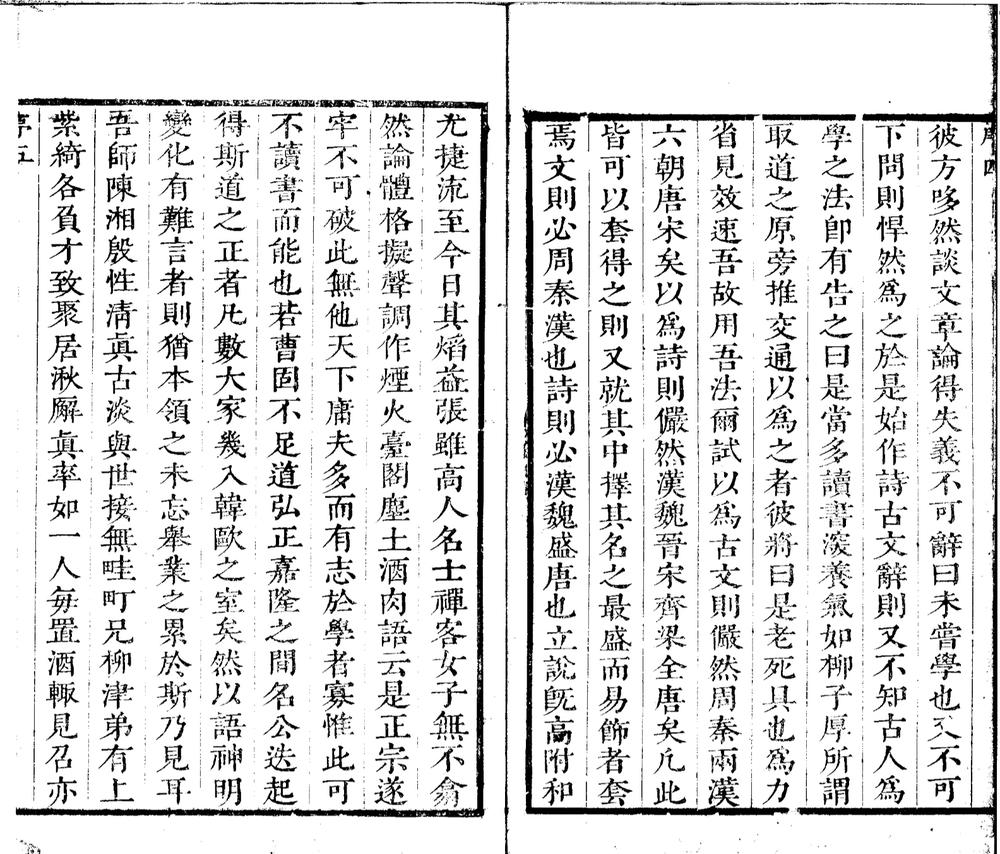 序四
彼方哆然談文章論得失義不可辭曰未嘗學也又不可
下問則悍然爲之於是始作詩古文辭則又不知古人爲
學之法卽有告之曰是當多讀書深養氣如柳子厚所謂
取道之原旁推交通以爲之者彼將曰是老死具也爲力
省見效速吾故用吾法爾試以爲古文則儼然周秦兩漢
六朝唐宋矣以爲詩則儼然漢魏晉宋齊梁全唐矣凡此
皆可以套得之則又就其中擇其名之最盛而易飾者套
焉文則必周秦漢也詩則必漢魏盛唐也立說旣高附和
尤捷流至今日其焰益張雖高人名士禪客女子無不翕
然論體格擬聲調作煙火臺閣塵土酒肉語云是正宗遂
牢不可破此無他天下庸夫多而有志於學者寡惟此可
不讀書而能也若曹固不足道弘正嘉隆之間名公迭起
得斯道之正者凡數大家幾入韓歐之室矣然以語神明
變化有難言者則猶本領之未忘舉業之累於斯乃見耳
吾師陳湘殷性淸眞古淡與世接無畦町兄柳津弟有上
紫綺各負才致聚居湫廨眞率如一人每置酒輒見召亦
序五